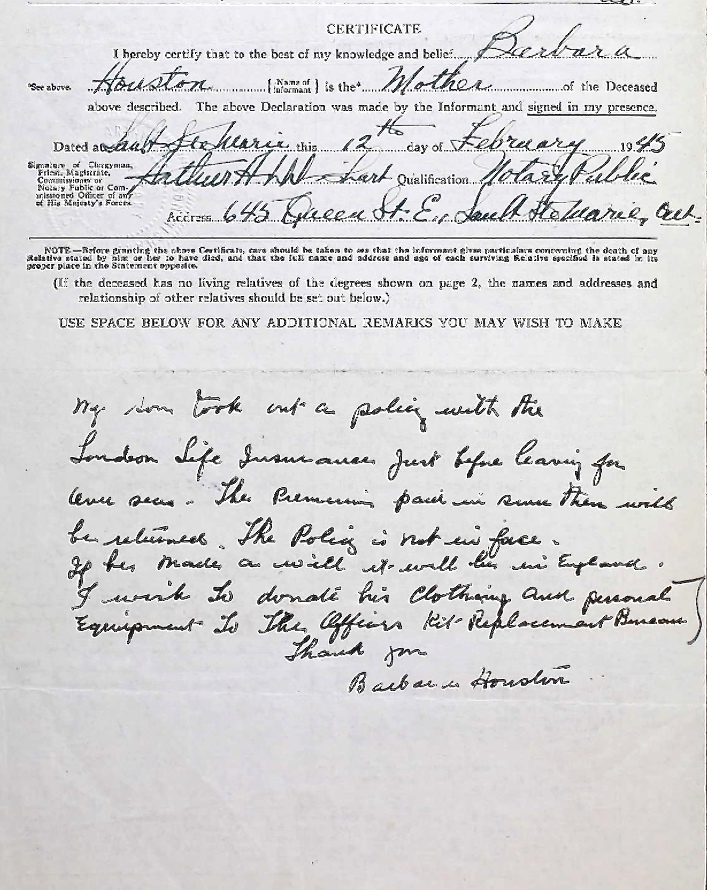 CERTIFICATE
I hereby certify that to the best of my knowledge and belief Barbara
*See above. Houston {Name of Informant} is the* Mother of the Deceased
above described. The above Declaration was made by the Informant and signed in my presence.
Dated at Sault Ste Marie this 12th day of February 1945
Signature of Clergyman, Priest, Magistrate, Commissioner or Notary Public or Commissioned Officer of any of His Majesty's Forces.
Arthur A Hart Qualification Notary Public
Address 645 Queen St. E., Sault Ste Marie, Ont.
NOTE—Before granting the above Certificate, care should be taken to see that the informant gives particulars concerning the death of any
Relative stated by him or her to have died, and that the full name and address and age of each surviving Relative specified is stated in its
proper place in the Statement opposite.
(If the deceased has no living relatives of the degrees shown on page 2, the names and addresses and
relationship of other relatives should be set out below.)
USE SPACE BELOW FOR ANY ADDITIONAL REMARKS YOU MAY WISH TO MAKE
My son took out a policy with the
London Life Insurance Just before leaving for
over seas. The Premium paid in since then will
be returned. The Policy is not in force.
If he made a will it will be in England.
I wish to donate his clothing and personal
Equipment to The Officers Kit Replacement Bureau
Thank you
Barbara Houston